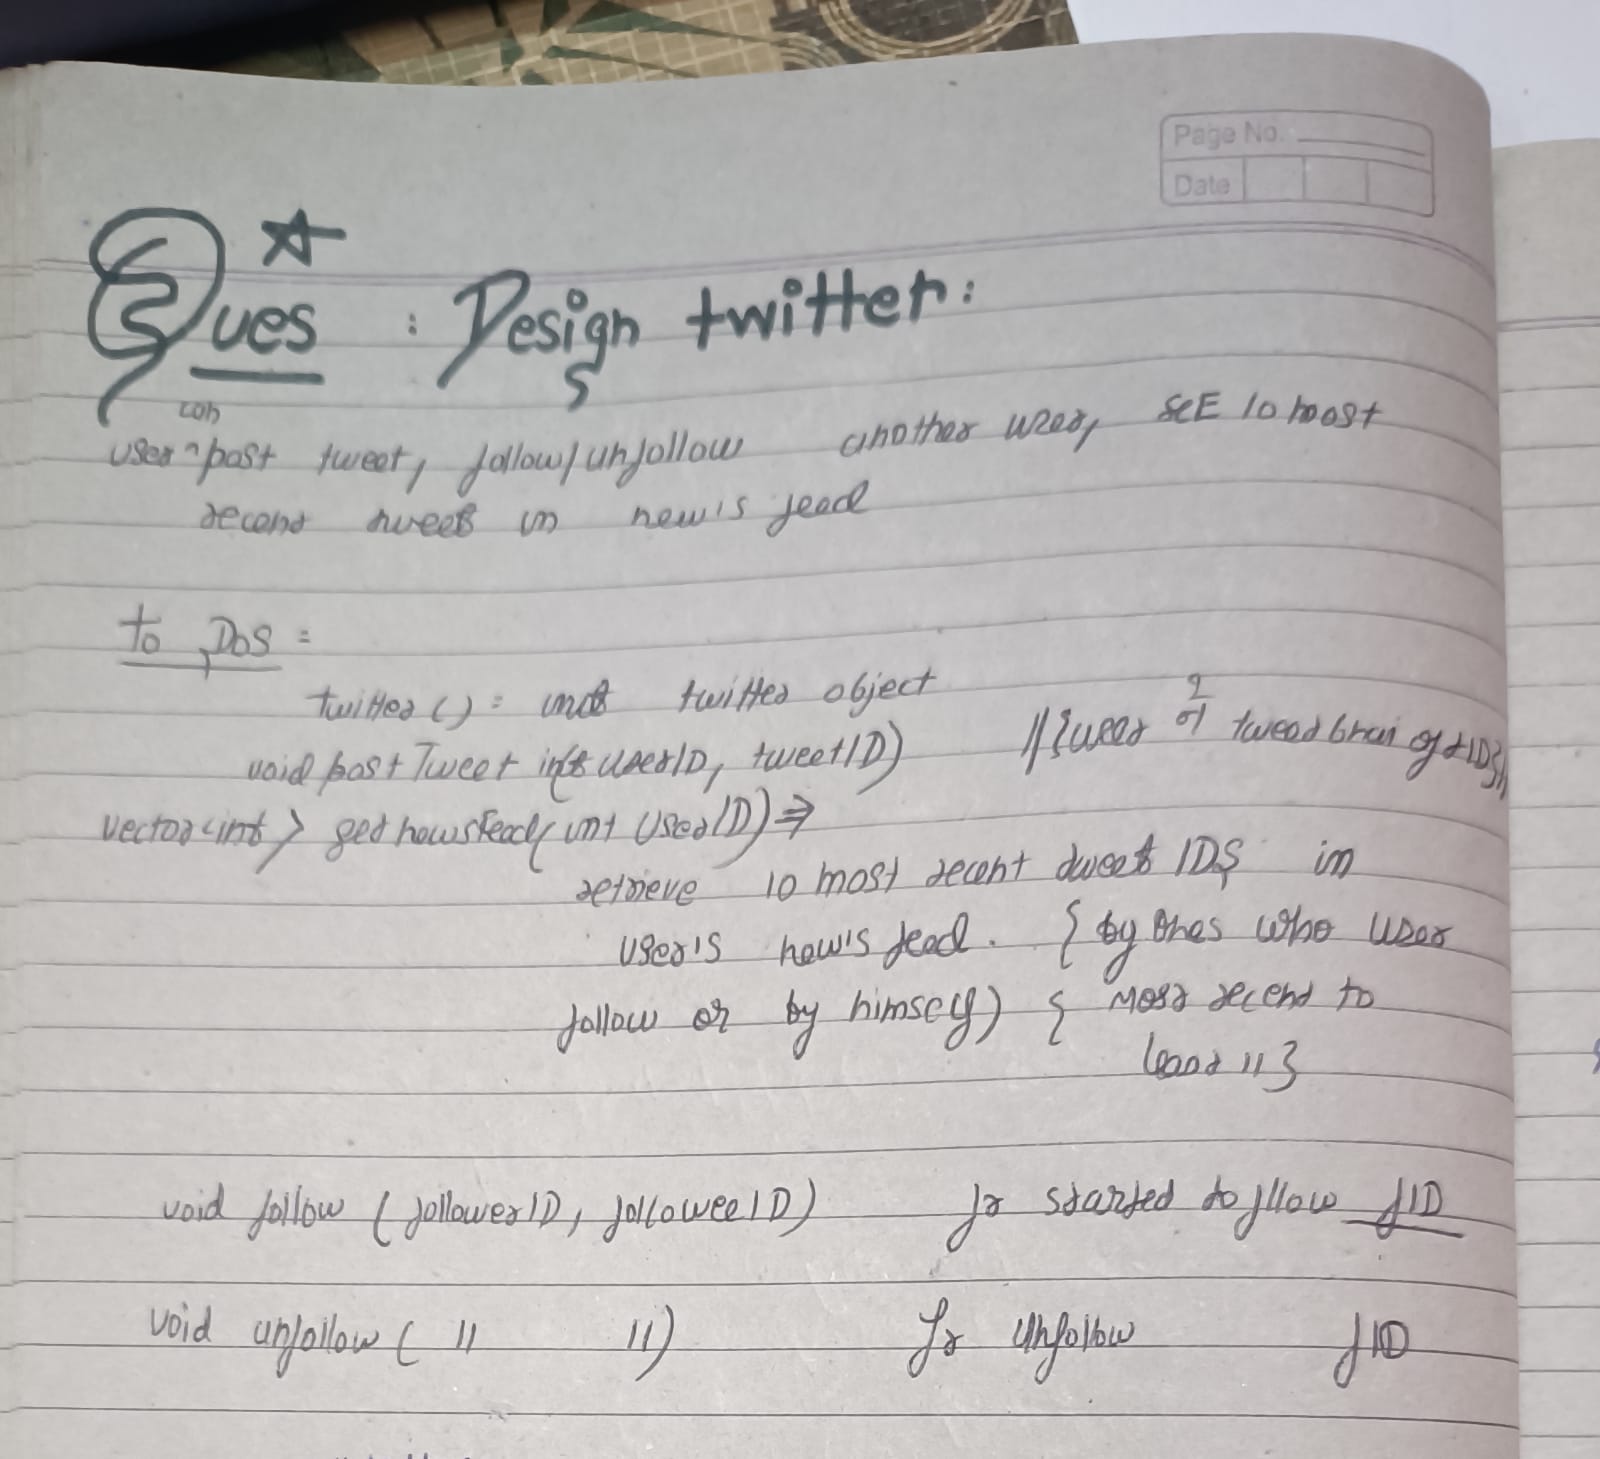 Page No.
Date
Ques : Design twitter:
can
user ^ post tweet, follow/unfollow another user, SEE 10 most
recent tweets in new's feed
To DOS =
twitter() = init twitter object
void postTweet int userID, tweetID) //{user
vector<int> getnewsFeed(int UserID) ⇒
retrieve 10 most recent tweet IDS in
user's new's feed. { by ones who user
follow or by himself) { most recent to
least 11 }
void follow ( followerID, followeeID) fr started to follow fID
void unfollow ( 11 11) fr unfollow fID